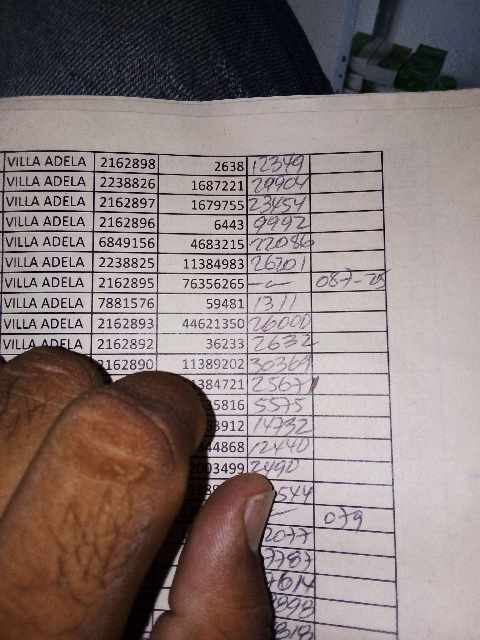 VILLA ADELA 2162898 2638 12349
VILLA ADELA 2238826 1687221 29904
VILLA ADELA 2162897 1679755 23454
VILLA ADELA 2162896 6443 9992
VILLA ADELA 6849156 4683215 22086
VILLA ADELA 2238825 11384983 26201
VILLA ADELA 2162895 76356265
VILLA ADELA 7881576 59481 1311
VILLA ADELA 2162893 44621350 26000
VILLA ADELA 2162892 36233 2632
2162890 11389202 30369
384721 25671
35816 5575
3912 14732
44868 12440
003499 2490
544
079
2077
7787
7614